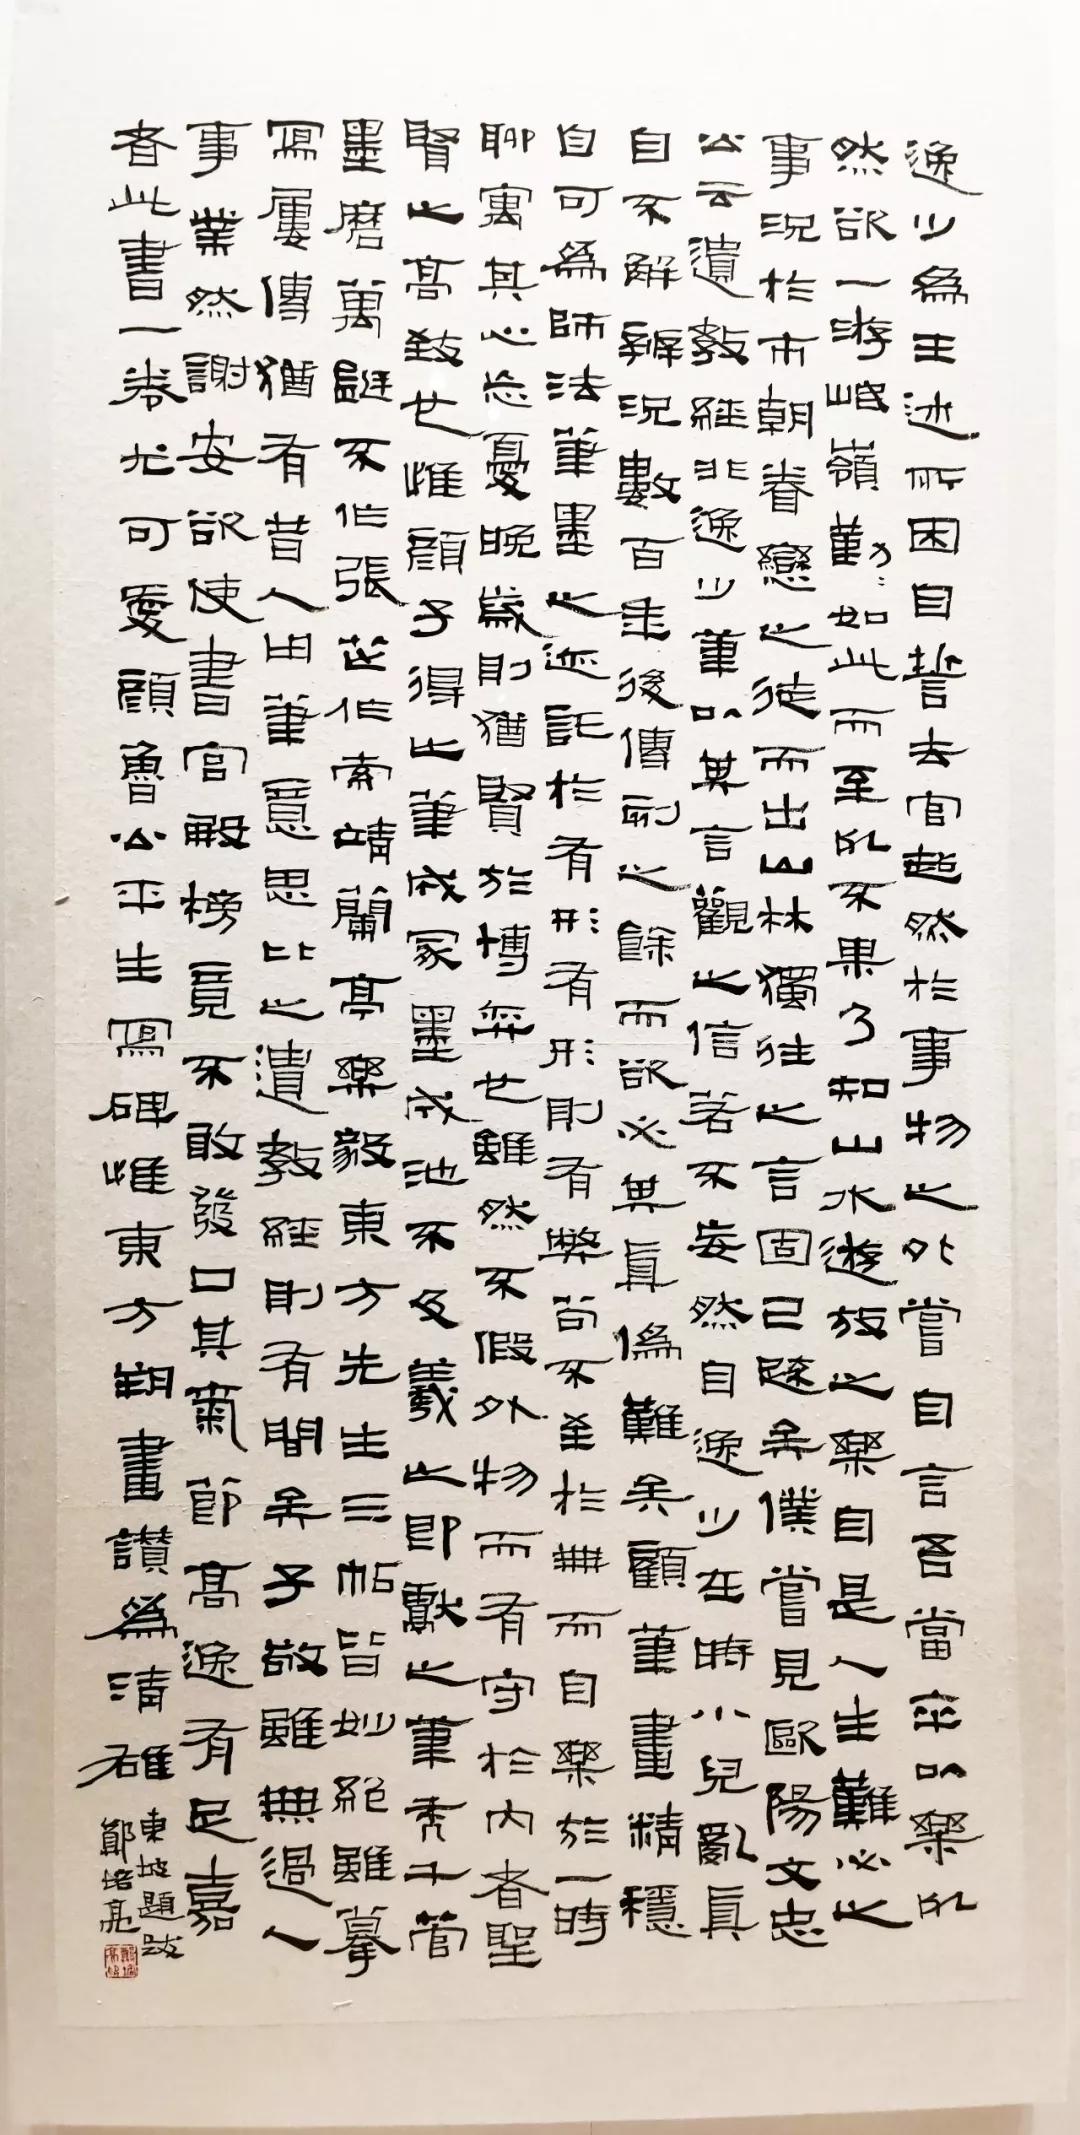 逸少為王述所困自誓去官超然於事物之外嘗自言吾當卒以樂死
然欲一游岷嶺勤勤如此而至死不果乃知山水遊放之樂自是人生難必之
事況於市朝眷戀之徒而出山林獨往之言固已疎矣僕嘗見歐陽文忠
公云遺教經非逸少筆以其言觀之信若不妄然自逸少在時小兒亂真
自不解辨況數百年後傳刻之餘而欲必其真偽難矣顧筆畫精穩
自可為師法筆墨之迹託於有形有形則有弊苟不至於無而自樂於一時
聊寓其心忘憂晚歲則猶賢於博弈也雖然不假外物而有守於內者聖
賢之高致也惟顏子得之筆成冢墨成池不及羲之即獻之筆禿千管
墨磨萬鋌不作張芝作索靖蘭亭樂毅東方先生三帖皆妙絕雖摹
寫屢傳猶有昔人用筆意思比之遺教經則有間矣子敬雖無過人
事業然謝安欲使書宮殿榜竟不敢發口其氣節高逸有足嘉
者此書一卷尤可愛顏魯公平生寫碑惟東方朔畫讚為清雄
東坡題跋
鄭培亮